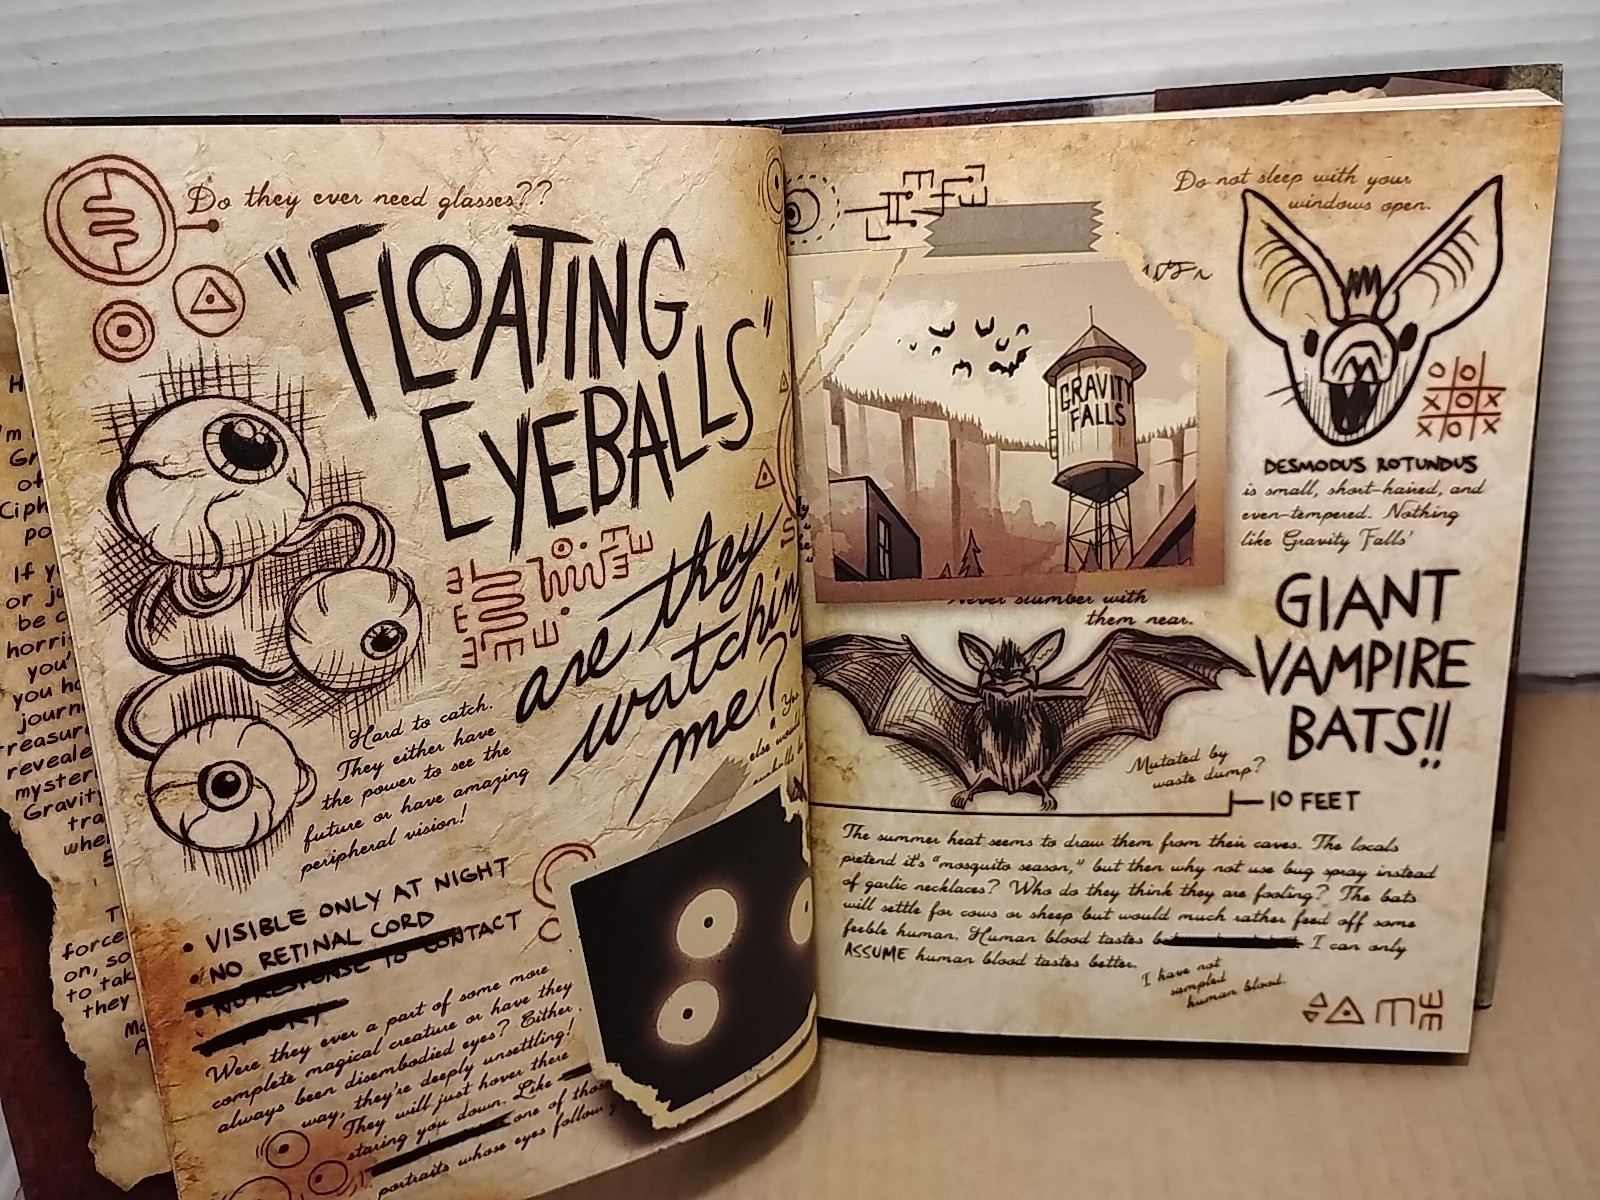 Do they ever need glasses??
"FLOATING
EYEBALLS"
are they
watching
me?
Hard to catch.
They either have
the power to see the
future or have amazing
peripheral vision!
• VISIBLE ONLY AT NIGHT
• NO RETINAL CORD
• NO RESPONSE TO CONTACT
Were they ever a part of some more
complete magical creature or have they
always been disembodied eyes? Either
way, they're deeply unsettling!
They will just hover there
staring you down. Like
one of those
portraits whose eyes follow
Do not sleep with your
windows open.
GRAVITY
FALLS
O O
X O X
X O X
DESMODUS ROTUNDUS
is small, short-haired, and
even-tempered. Nothing
like Gravity Falls'
GIANT
VAMPIRE
BATS!!
Never slumber with
them near.
Mutated by
waste dump?
10 FEET
The summer heat seems to draw them from their caves. The locals
pretend it's "mosquito season," but then why not use bug spray instead
of garlic necklaces? Who do they think they are fooling? The bats
will settle for cows or sheep but would much rather feed off some
feeble human. Human blood tastes I can only
ASSUME human blood tastes better.
I have not
sampled
human blood.